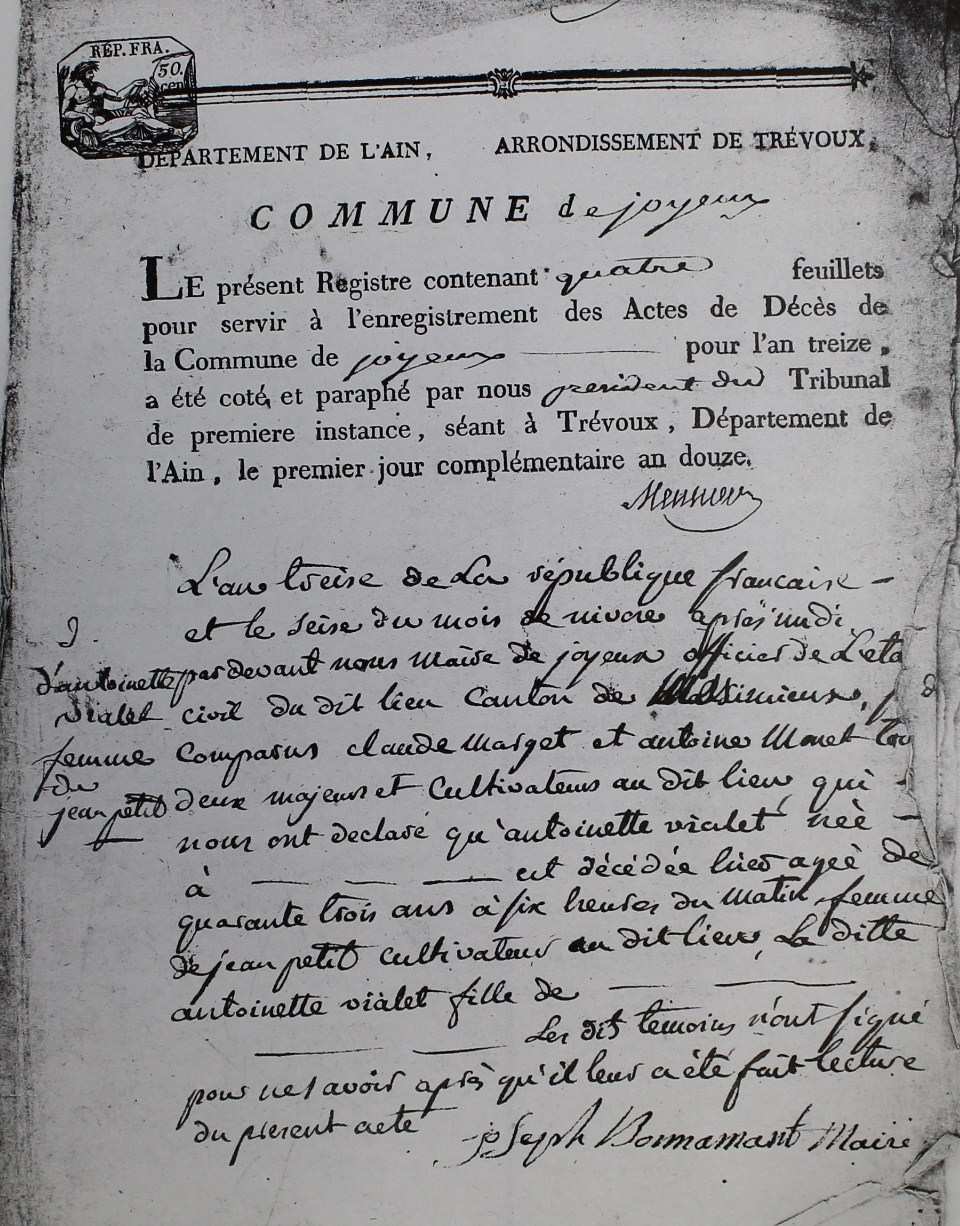 RÉP. FRA.
50.
cen
DÉPARTEMENT DE L'AIN, ARRONDISSEMENT DE TRÉVOUX,
COMMUNE de joyeux
LE présent Registre contenant quatre feuillets
pour servir à l'enregistrement des Actes de Décès de
la Commune de joyeux pour l'an treize,
a été coté et paraphé par nous president du Tribunal
de premiere instance, séant à Trévoux, Département de
l'Ain, le premier jour complémentaire an douze.
L'an treise de La république francaise
et le seise du mois de nivore après midi
d'antoinette vialet femme de jean petit
pardevant nous maire de joyeux officier de Leta
civil du dit lieu Canton de
Comparus claude marget et antoine Monet tou
deux majeurs et Cultivateurs au dit lieu qui
nous ont declaré qu'antoinette vialet née
à — — — est décédée hier ageè de
quarante trois ans à six heures du matin femme
de jean petit cultivateur au dit lieu La ditte
antoinette vialet fille de — —
— — Les dit temoins n'ont signé
pour ne savoir après qu'il leur a été fait lecture
du present acte Joseph Bonnamant Maire